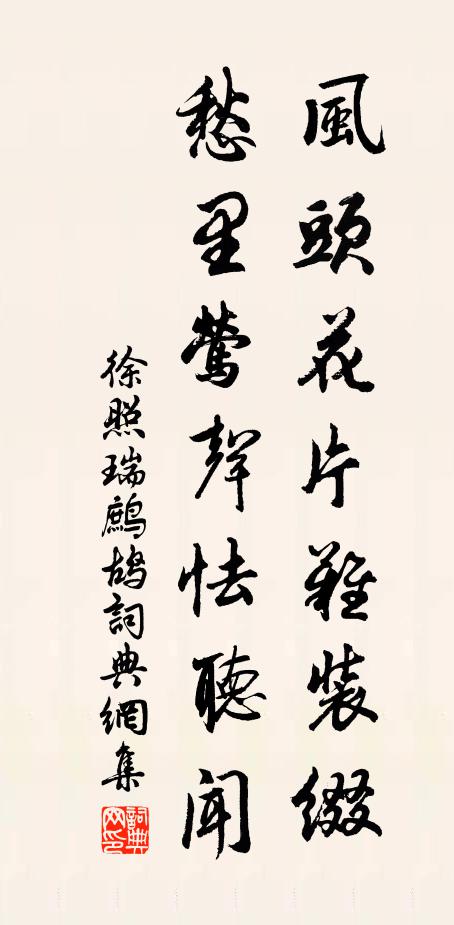 風頭花片難裝綴
愁里鶯聲怯聽聞
徐照瑞鷓鴣詞典網集
詞典網印